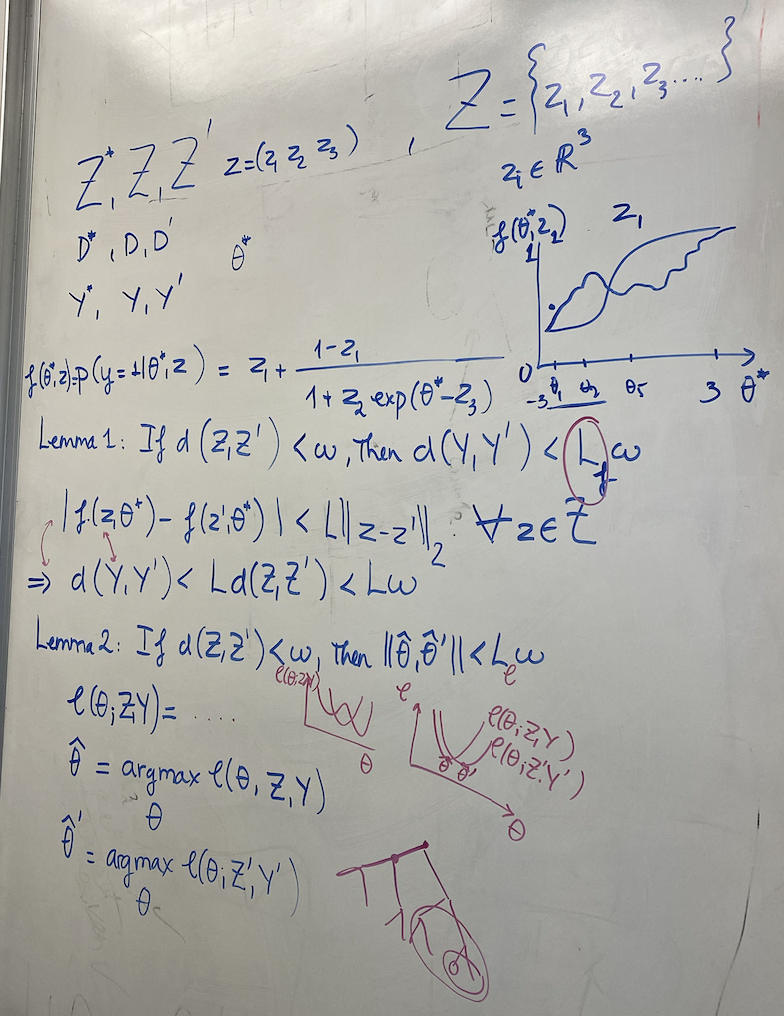 Z = {z₁, z₂, z₃....}
Z*, Z, Z' z=(z₁ z₂ z₃) ,
zᵢ ∈ ℝ³
D*, D, D' θ*
Y*, Y, Y'
f(θ*,z₂) z₁
1
0 -3 θ₁ θ₂ θ₅ 3 θ*
f(θ*,z)=p(y=1|θ*,z) = z₁ + (1-z₁)/(1+z₂ exp(θ*-z₃))
Lemma 1: If d(Z,Z') < ω, then d(Y,Y') < L_f ω
|f(z,θ*) - f(z',θ*)| < L||z-z'||₂. ∀z∈Z
⇒ d(Y,Y') < Ld(Z,Z') < Lω
Lemma 2: If d(Z,Z') < ω, then ||θ̂,θ̂'|| < L_ℓ ω
ℓ(θ;Z,Y) = ....
ℓ(θ;Z,Y)
θ
ℓ
ℓ(θ;Z,Y)
ℓ(θ;Z',Y')
θ̂ θ̂'
θ
θ̂ = argmax ℓ(θ, Z, Y)
θ
θ̂' = argmax ℓ(θ; Z', Y')
θ